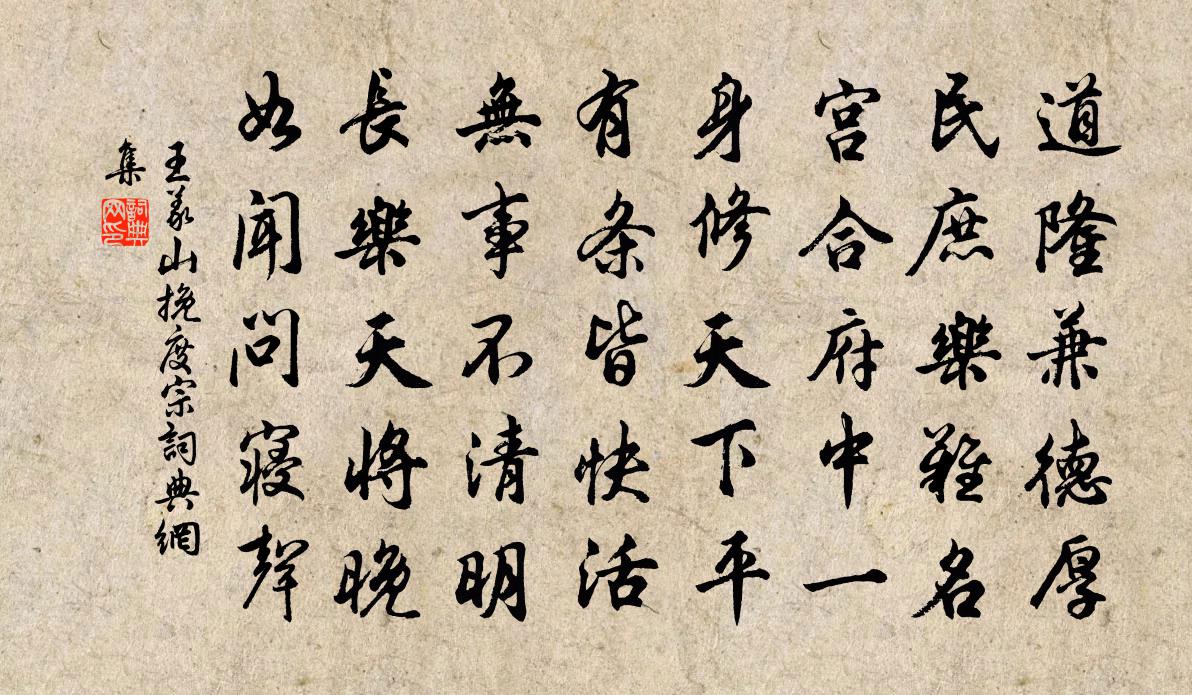 道隆兼德厚
民庶樂難名
宮合府中一
身修天下平
有条皆快活
無事不清明
長樂天將晚
如聞問寢聲
王義山挽度宗詞典網
集
詞典網印